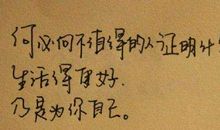 何必向不值得的人证明什
生活得更好
乃是为你自己。